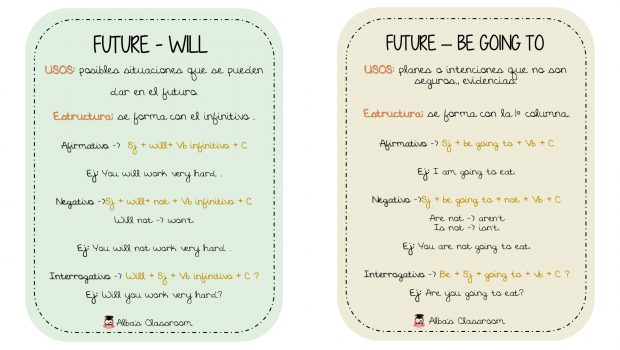 FUTURE - WILL
USOS: posibles situaciones que se pueden
dar en el futuro.
Estructura: se forma con el infinitivo .
Afirmativo -> Sj + will+ Vb infinitivo + C
Ej: You will work very hard .
Negativo ->Sj + will+ not + Vb infinitivo + C
Will not -> won't.
Ej: You will not work very hard .
Interrogativo -> Will + Sj + Vb infinitivo + C ?
Ej: Will you work very hard?
Alba's Classroom
FUTURE – BE GOING TO
USOS: planes o intenciones que no son
seguros, evidencias.
Estructura: se forma con la 1º columna.
Afirmativo -> Sj + be going to + Vb + C
Ej: I am going to eat.
Negativo ->Sj + be going to + not + Vb + C
Are not -> aren't.
Is not -> isn't.
Ej: You are not going to eat
Interrogativo -> Be + Sj + going to + vb + C ?
Ej: Are you going to eat?
Alba's Classroom.